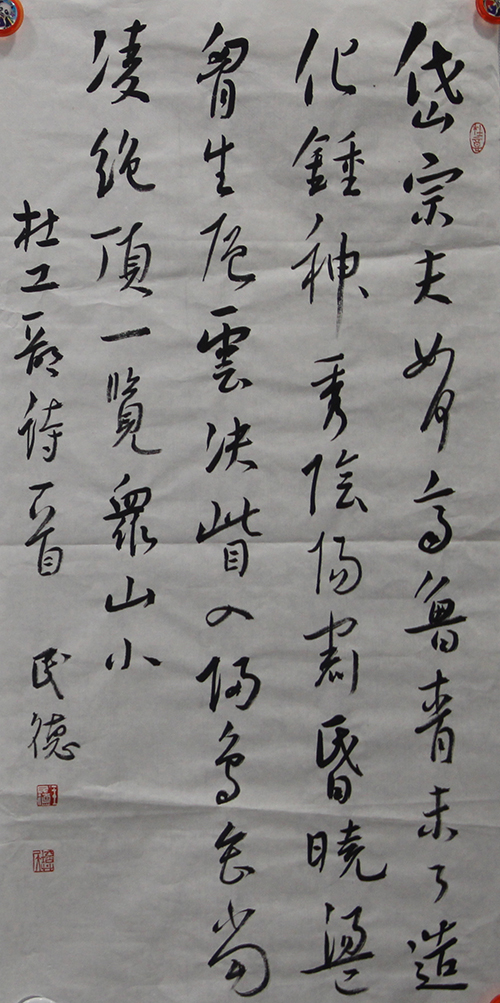 岱宗夫如何齊魯青未了造
化鍾神秀陰陽割昏曉盪
胷生层雲决眥入歸鳥會當
凌絕頂一覽眾山小
杜工部詩一首 民德